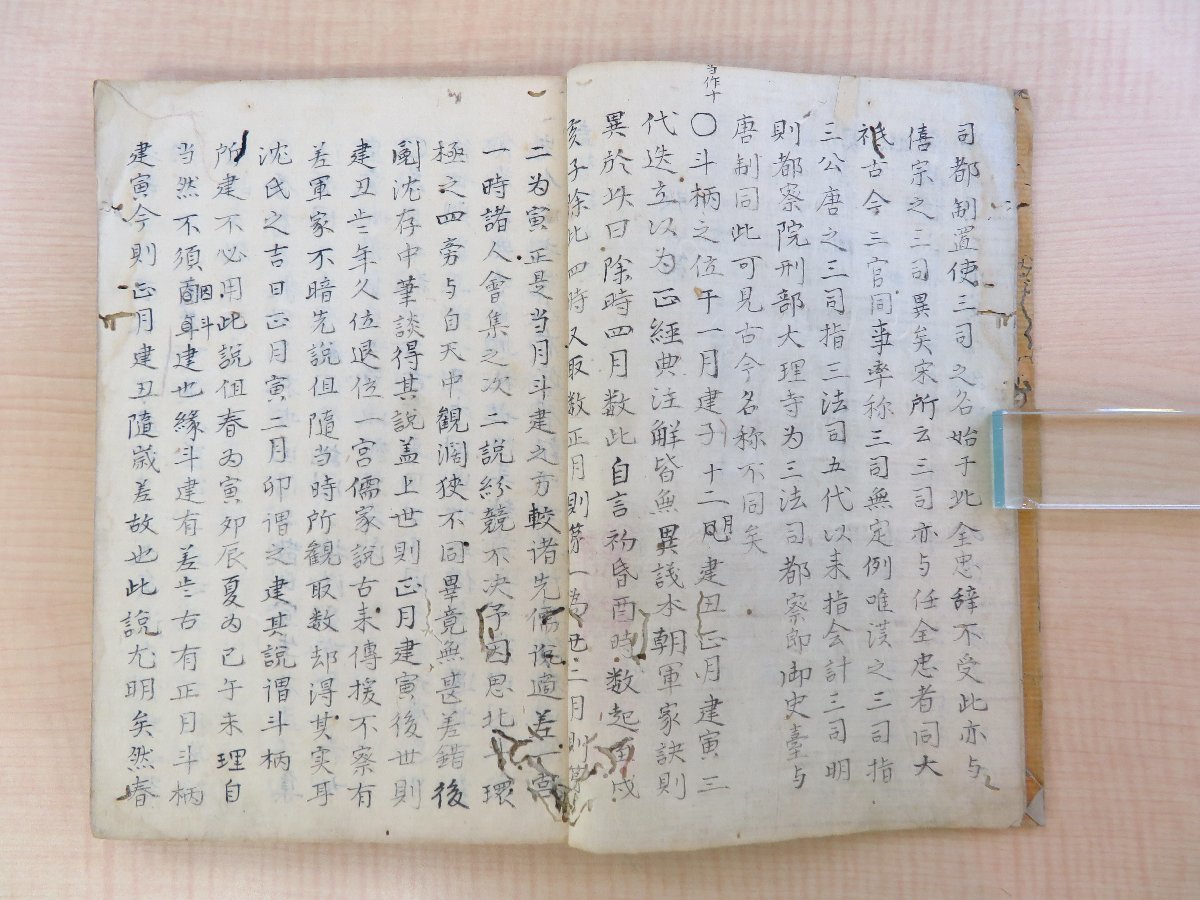 司都制置使三司之名始于此全忠辞不受此亦与
僖宗之三司異矣宋所云三司亦与任全忠者同大
祇古今三官同事率称三司無定例唯漢之三司指
三公唐之三司指三法司五代以来指会計三司明
則都察院刑部大理寺为三法司都察即御史臺与
唐制同此可見古今名称不同矣
当作十
〇斗柄之位于一月建子十二月建丑正月建寅三
月
代迭立以为正經典注解皆無異議本朝軍家訣則
異於此曰除時四月数此自言初昏酉時数起酉戌
亥子除此四時又取数正月則第一為丑二月則第
二为寅正是当月斗建之方較诸先儒说適差一宮
一時諸人會集之次二説紛競不决予因思北斗環
極之四旁与自天中観濶狭不同畢竟無甚差錯後
閲沈存中筆談得其説盖上世則正月建寅後世則
建丑歳年久位退位一宮儒家説古来傳援不察有
差軍家不暗先説但随当時所観取数却得其实耳
沈氏之言曰正月寅二月卯謂之建其説謂斗柄
所建不必用此説但春为寅卯辰夏为巳午未理自
当然不須因斗建也縁斗建有差歳古有正月斗柄
建寅今則正月建丑隨歳差故也此説尤明矣然春